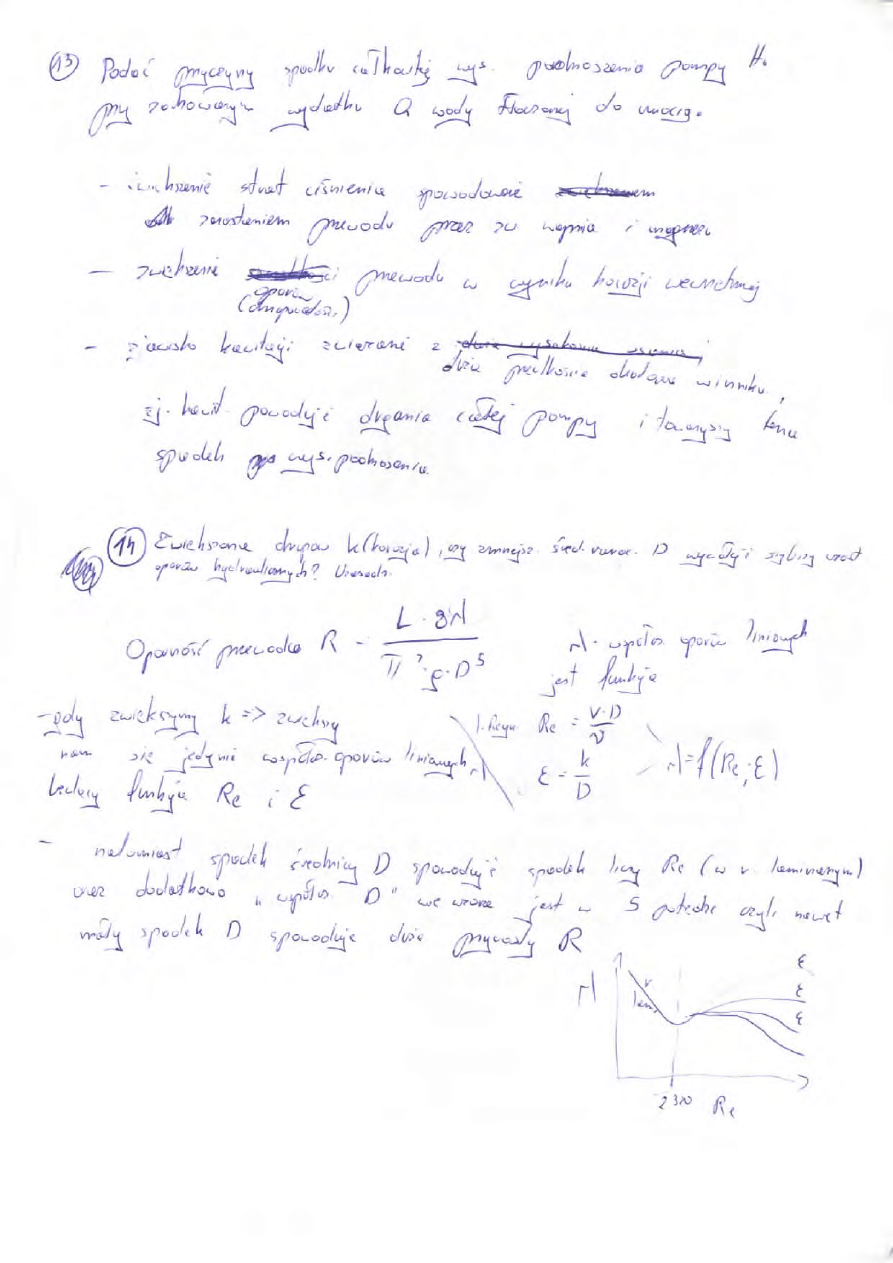 13 Podać przyczyny spadku całkowitej wys. podnoszenia pompy H.
przy zachowanym wydatku Q wody tłoczonej do
- zwiększenie strat ciśnienia spowodowane
zarastaniem przewodu przez zw wapnia i magnezu
- zwiększenie przewodu w wyniku korozji wewnętrznej
oporów
(chropowatość.)
- zjawisko kawitacji związane z
duże prędkości obwodowe wirnika,
zj. kawit. powoduje drgania całej pompy i towarzyszy temu
spadek wys. podnoszenia.
14 Zwiększenie chropow k (korozja), czy zmniejsz. średn. D wywoły szybszy wzrost
oporów hydraulicznych? Uzasadn.
Oporność przewodu R = L · 8λ / π² · g · D⁵
λ - współ. oporów liniowych
jest funkcją
- gdy zwiększymy k => zwiększy
nam się jedynie współ. oporów liniowych λ
będący funkcja Re i ε
Re = v·D / ν
ε = k / D
λ = f(Re; ε)
- natomiast spadek średnicy D spowoduje spadek liczby Re (w r. laminarnym)
oraz dodatkowo „współ. D" we wzorze jest w 5 potędze czyli nawet
mały spadek D spowoduje duże przyrosty R
λ
r
lam.
ε
ε
ε
2320
Re